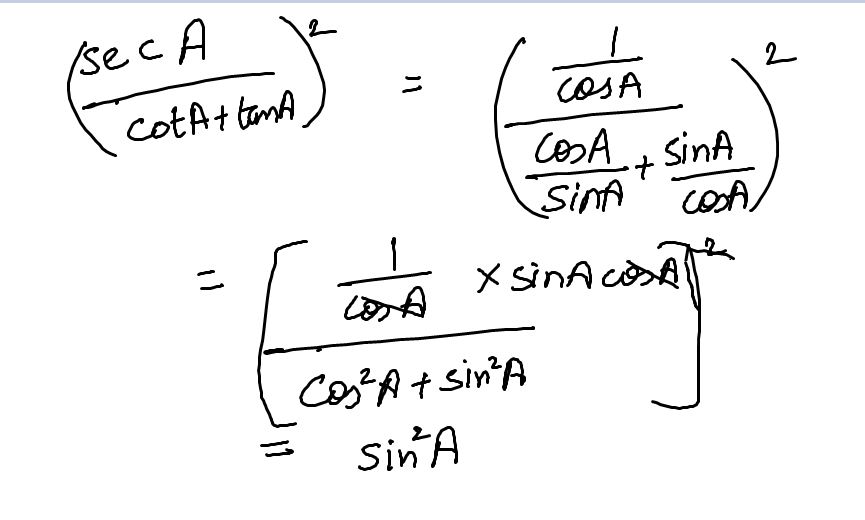 (sec A / (cotA + tanA))² = ((1/cosA) / (cosA/sinA + sinA/cosA))²
= [(1/cosA × sinA cosA) / (cos²A + sin²A)]²
= sin²A